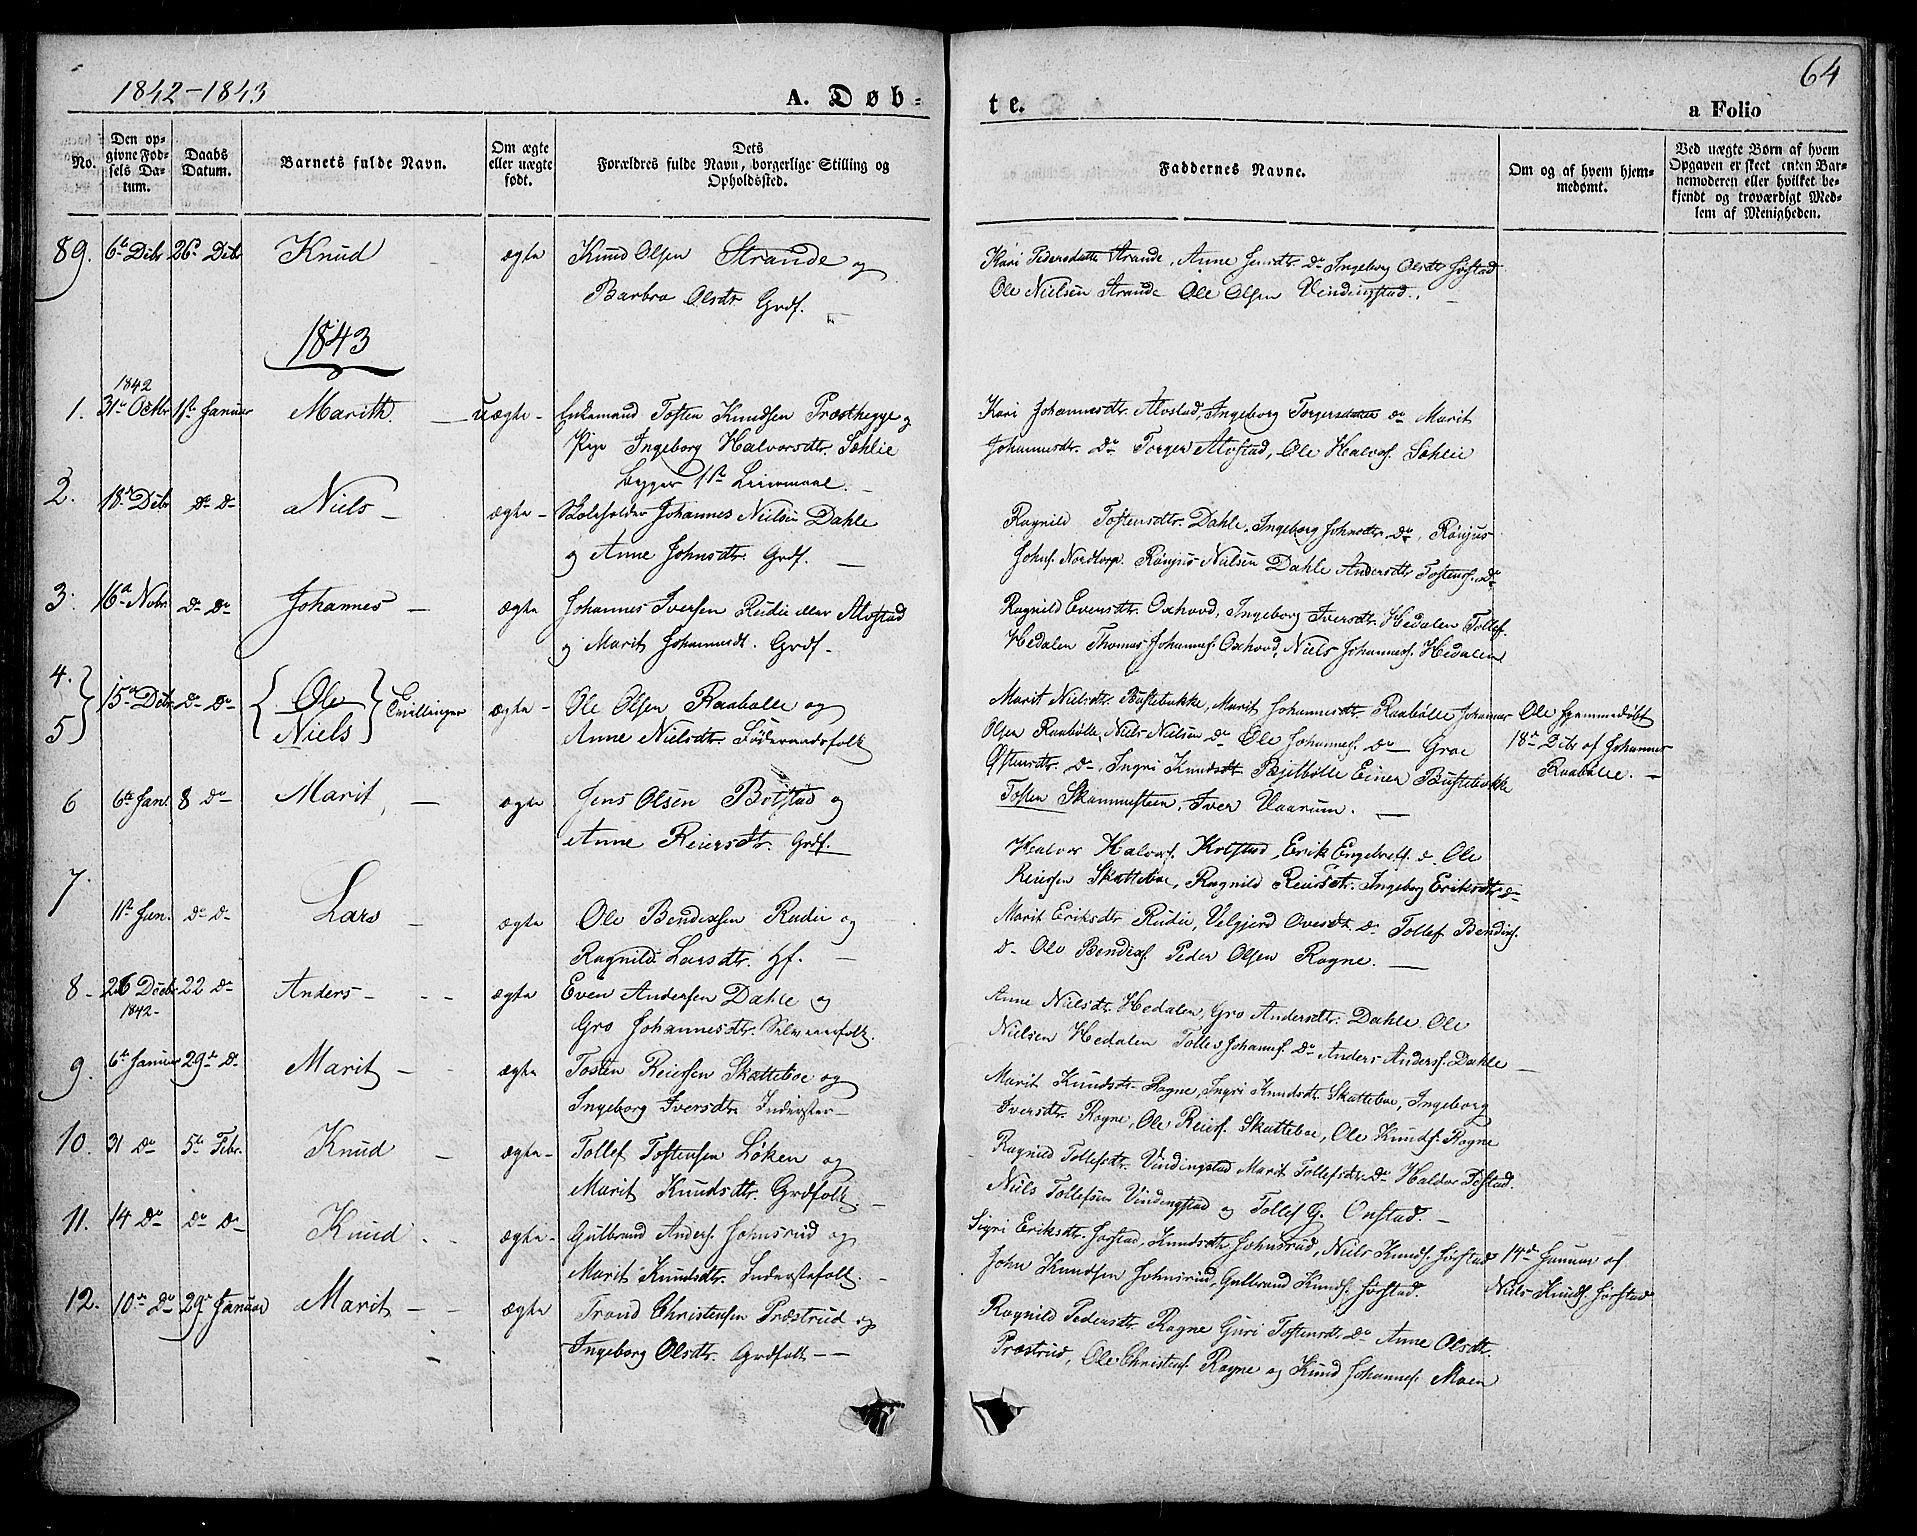 1842-1843
A. Døb-
te.
64
a Folio
No.
Den op-
givne Fød-
sels Da-
tum.
Daabs
Datum.
Barnets fulde Navn.
Om ægte
eller uægte
født.
Dets
Forældres fulde Navn, borgerlige Stilling og
Opholdssted.
Faddernes Navne.
Om og af hvem hjem-
medømt.
Ved uægte Børn af hvem
Opgaven er skeet enten Bar-
nemoderen eller hvilket be-
kjendt og troværdigt Med-
lem af Menigheden.
89. 6te Dcbr 26de Dcbr Knud ægte Knud Olsen Strande og
Barbro Olsdtr Grdf.
Kari Pedersdatter Strande, Anne Do Ingeborg Olsdtr
Ole Nielsen Strande Ole Olsen Vindingstad.
1843
1842
1. 31te Octbr 1ste Januar Marith. uægte - Enkemand Tosten Knudsen Præsthegge og
Pige Ingeborg Halvorsdtr. Søhlie
Begges 1ste Leiermaal.
Kari Johannesdtr. Alvstad, Ingeborg Torgersdatter do Marit
Johannesdtr. Do Torger Alvstad, Ole Halvors. Søhlie
2. 18de Dcbr Do Do Niels - ægte - Skoleholder Johannes Nielsen Dahle
og Anne Johnsdtr. Grdf.
Ragnild Tostensdtr. Dahle, Ingeborg Johnsdtr. do, Rønjus
Johns. Nordtorp. Rønjus Nielsen Dahle Andersdtr Tostens. Do
3. 16de Nobr. Do Do Johannes - ægte Johannes Iversen Rudie eller Alvstad
og Marit Johannesdt. Grdf.
Ragnild Eversdtr. Oxhovd, Ingeborg Iversdtr. Hedalen Tollef
Hedalen Thomas Johannes. Oxhovd, Niels Johannes. Hedalen
4.
5 } 15de Dcbr. Do Do { Ole
Niels } Tvillinger ægte - Ole Olsen Raabølle og
Anne Nielsdtr. Föderaadsfolk
Marit Nielsdtr. Buftebakke, Marit Johannesdtr. Raabølle Johannes
Olsen Raabølle, Niels Nielsen Do Ole Johannes. Do Groe
Ostensdtr. Do, Ingri Knudsdtr. Einer Buftebakke
Tosten Skammesteen, Iver Vaarum.
Ole hjemmedøbt
18de Dcbr af Johannes
Raabølle.
6 6te Jan. 8 Do Marit, - ægte Jens Olsen Bolstad og
Anne Reiersdtr. Grdf.
Halvor Halvors. Kolstad, Erik Engebrets. do. Ole
Reiersen Skatteboe, Ragnild Reiersdtr. Ingeborg Eriksdtr. do
7. 11te Jan. Do Do Lars - ægte Ole Bendixsen Rudie og
Ragnild Larsdtr. Hf.
Marit Eriksdtr Rudie, Velgjerd Oversdt. Do Tollef Bendixs.
Do Ole Bendixs. Peder Olsen Rogne.
8 - 26 Decbr 22 Do Anders - ægte Even Andersen Dahle og
1842 -
Gro Johannesdtr. Selveierfolk.
Anne Nielsdtr. Hedalen, Gro Andersdtr. Dahle, Ole
Nielsen Hedalen Tollef Johanns. Do Anders Anders. Dahle
9. 6te Januar 29de Do. Marit - ægte Tosten Reiersen Skatteboe og
Ingeborg Iversdtr. Inderster
Marit Knudsdtr. Rogne, Ingri Knudsdtr. Skatteboe, Ingeborg
Iversdtr. Rogne, Ole Reiers. Skatteboe, Ole Knuds. Rogne
10. 31 Do 5te Febr. Knud - ægte - Tollef Tostensen Løken og
Marit Knudsdtr. Grdfolk.
Ragnild Tollefsdtr. Vindingstad Marit Tollefsdtr. Do Haldor
Niels Tollefsen Vindingstad og Tollef G. Onstad.
11. 14 Do Do Do Knud ægte - Gulbrand Anders. Johnsrud og
Marit Knudsdtr. Inderstefolk.
Sigri Eriksdtr. Forstad, Knudsdtr. Johnsrud, Niels Knuds. Forstad
John Knudsen Johnsrud, Gulbrand Knuds. Forstad.
14de Januar af
Niels Knuds. Forstad
12. 10de Do 29de Januar Marit - ægte Trond Christensen Præstrud og
Ingeborg Olsdtr. Grdfolk
Ragnild Pedersdtr. Rogne Guri Tostensdtr. Do Anne Olsdtr.
Præstrud, Ole Christens. Rogne og Knud Johannes. Moen